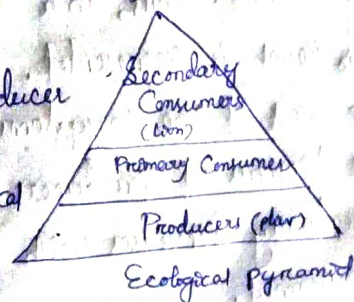 ducer
Secondary
Consumers
(Lion)
Primary Consumer
cal
Producers (plan)
Ecological pyramid